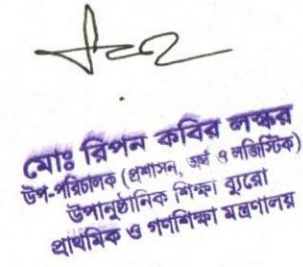 মোঃ রিপন কবির লস্কর
উপ-পরিচালক (প্রশাসন, অর্থ ও লজিস্টিক)
উপানুষ্ঠানিক শিক্ষা ব্যুরো
প্রাথমিক ও গণশিক্ষা মন্ত্রণালয়